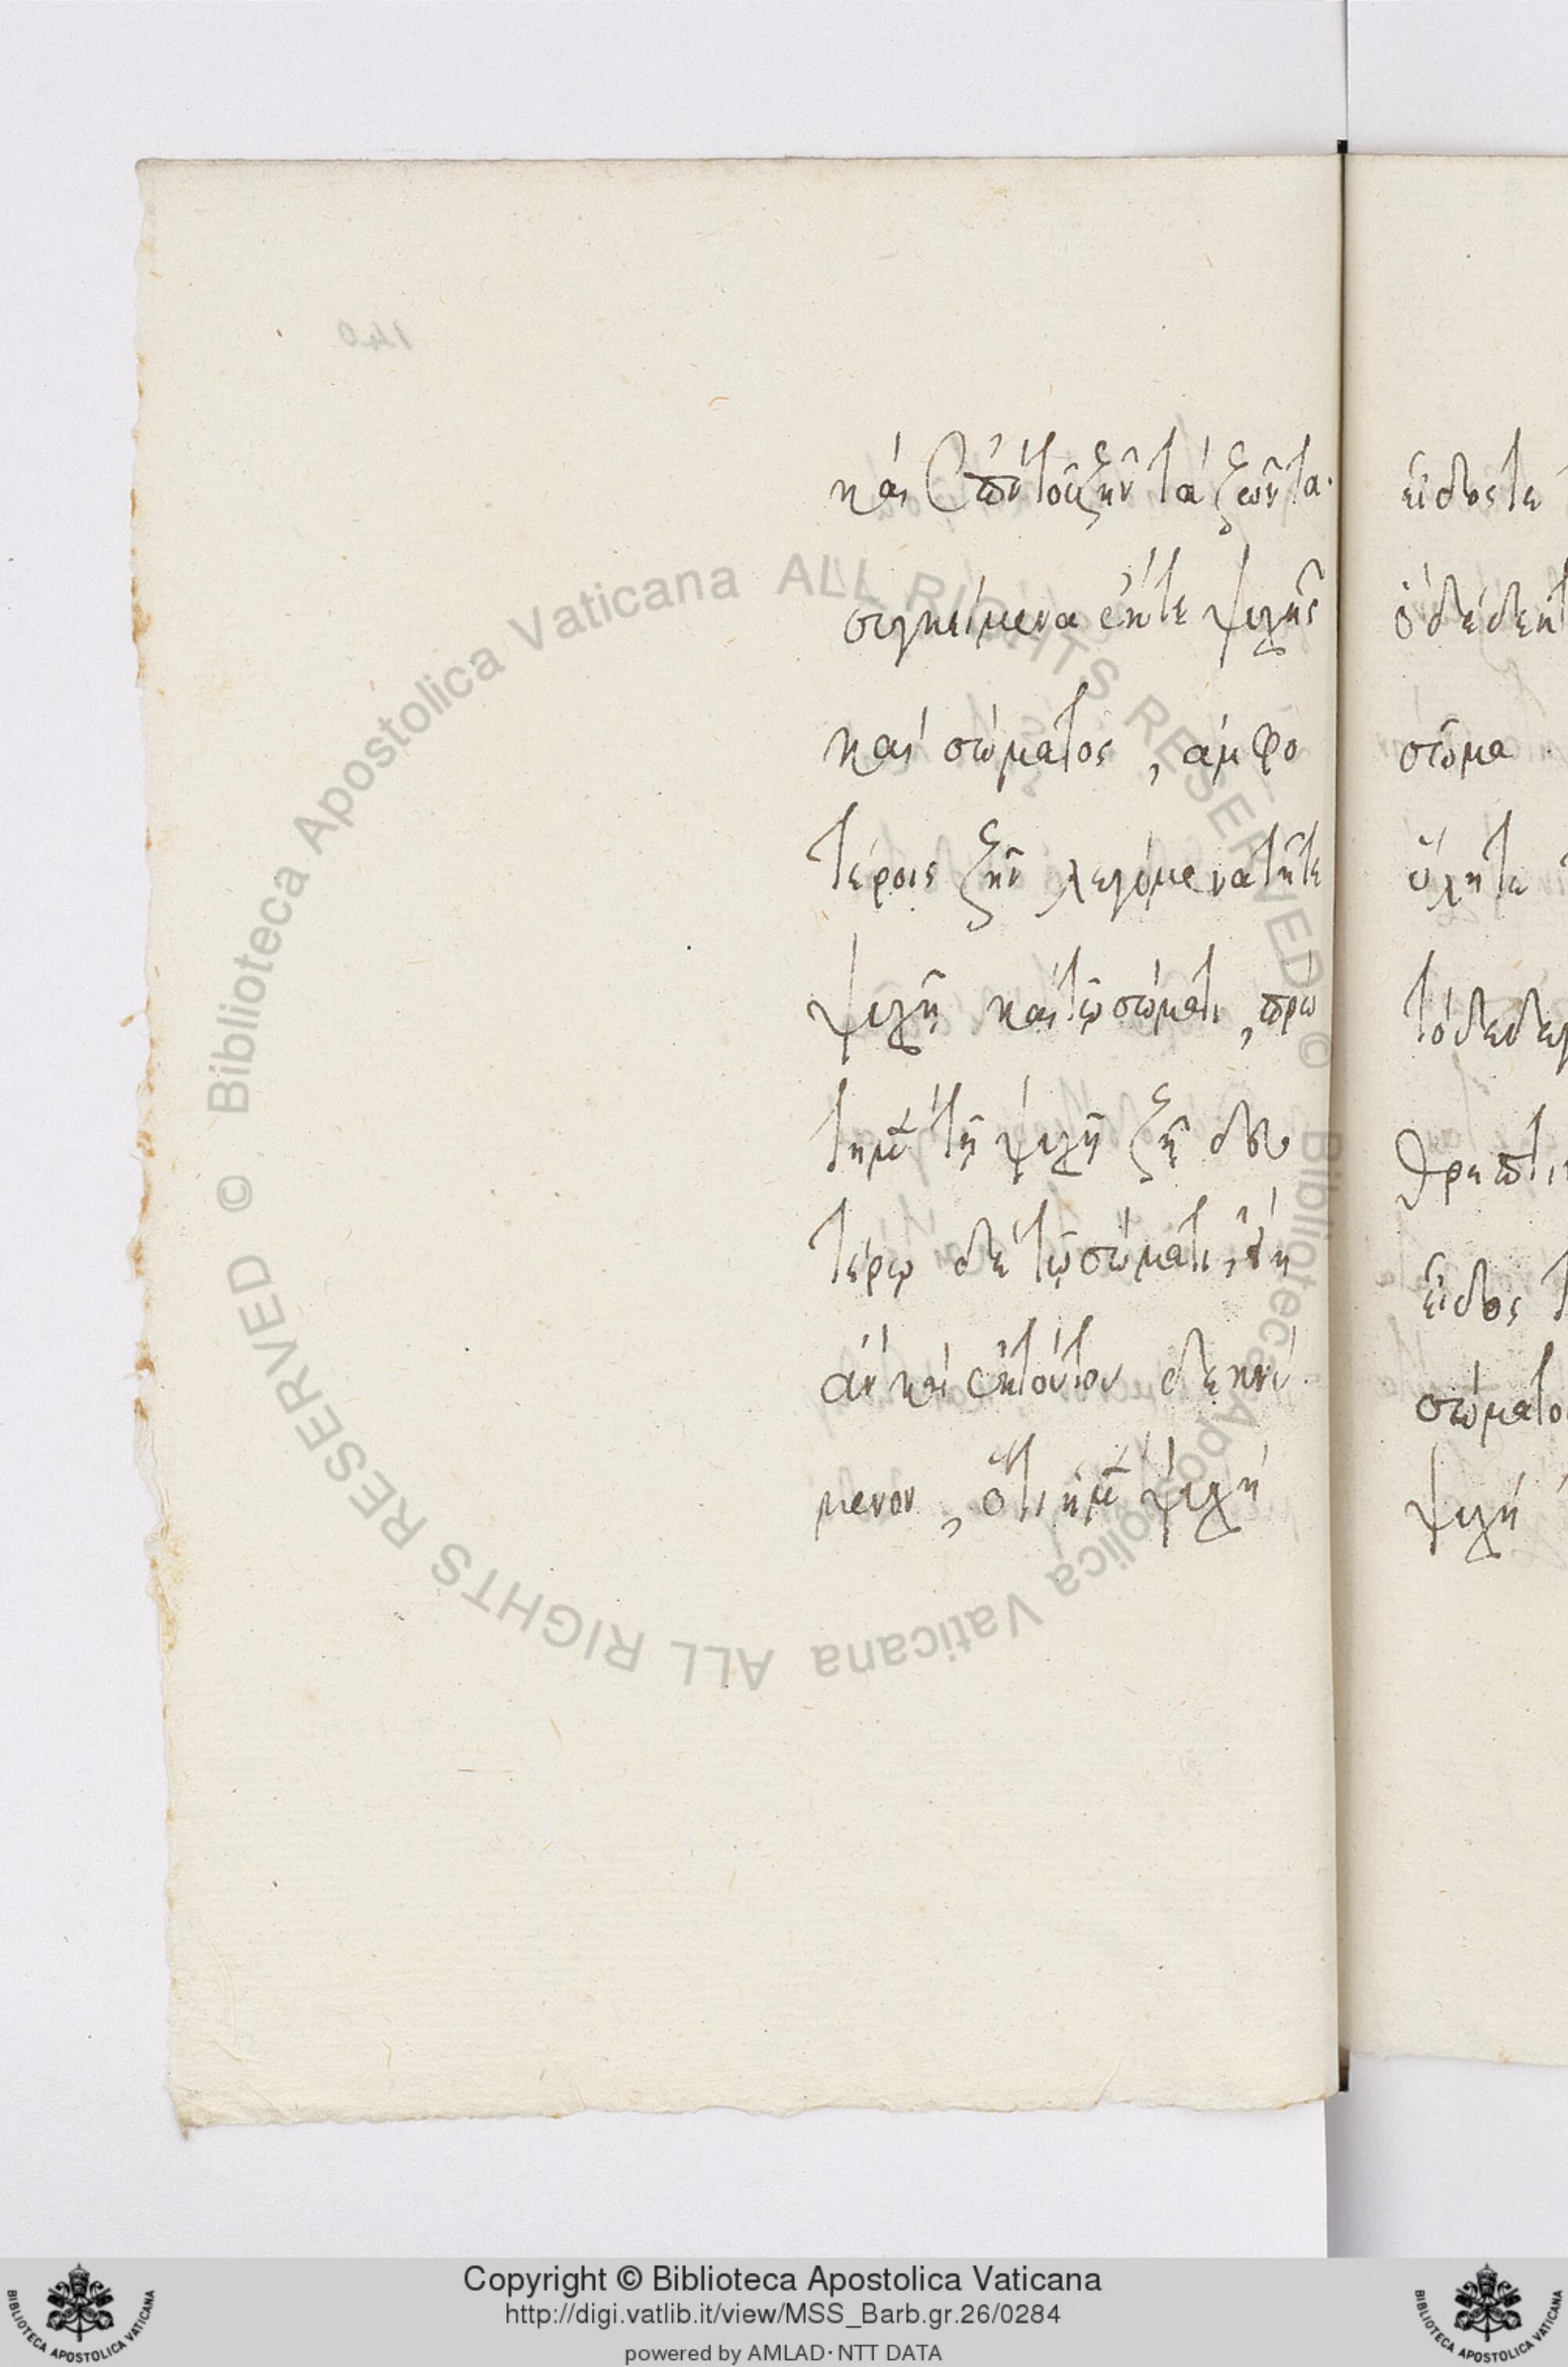 καὶ ἀπὸ τοῦ ζῆν τὰ ζῶντα.
συγκείμενα ἔκ τε ψυχῆς
καὶ σώματος, ἀμφο
τέροις ζῆν λεγόμενα τῆ τε
ψυχῆ καὶ τῷ σώματι, πρώ
τη μ̃ τῆ ψυχῆ ζῆ δευ
τέρῳ δὲ τῷ σώματι,
ἂν καὶ ἐκ τούτου δεικνύ
μενον, ὅτι ἡ μ̃ ψυχὴ
εἶδός τε
ὁ δὲ δεκτ
σῶμα
ὕλη τε
τὸ δὲ δε
θρεπτι
εἶδος
σώματο
ψυχὴ
140
© Biblioteca Apostolica Vaticana ALL RIGHTS RESERVED © Biblioteca Apostolica Vaticana ALL RIGHTS RESERVED
Copyright © Biblioteca Apostolica Vaticana
http://digi.vatlib.it/view/MSS_Barb.gr.26/0284
powered by AMLAD·NTT DATA
BIBLIOTECA APOSTOLICA VATICANA
BIBLIOTECA APOSTOLICA VATICANA